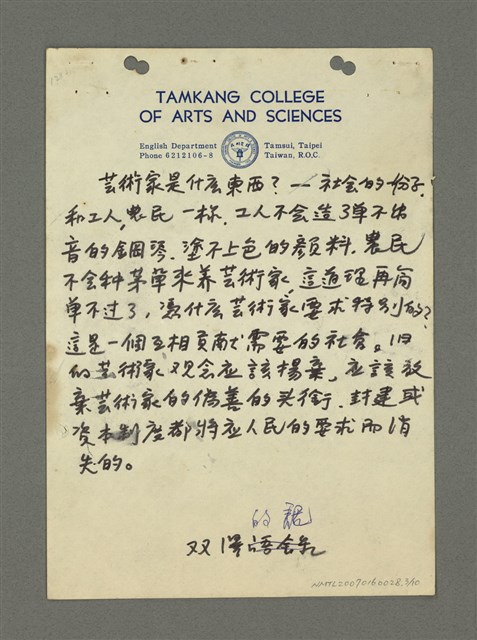 TAMKANG COLLEGE
OF ARTS AND SCIENCES
English Department
Phone 6212106-8
Tamsui, Taipei
Taiwan, R.O.C.
芸術家是什么東西？——社会的一份子.
和工人,農民一样.工人不会造了弹不出
音的鋼琴.塗不上色的顔料.農民
不会种某草来养芸術家,這道理再简
单不过了,憑什么芸術家要求特別的?
這是一個互相貢献需要的社会。旧
的芸術家观念应該揚棄,应該放
棄芸術家的偽善的头銜.封建或
資本制度都將应人民的要求而消
失的。
的
双澤語
NMTL20070160028,3/10